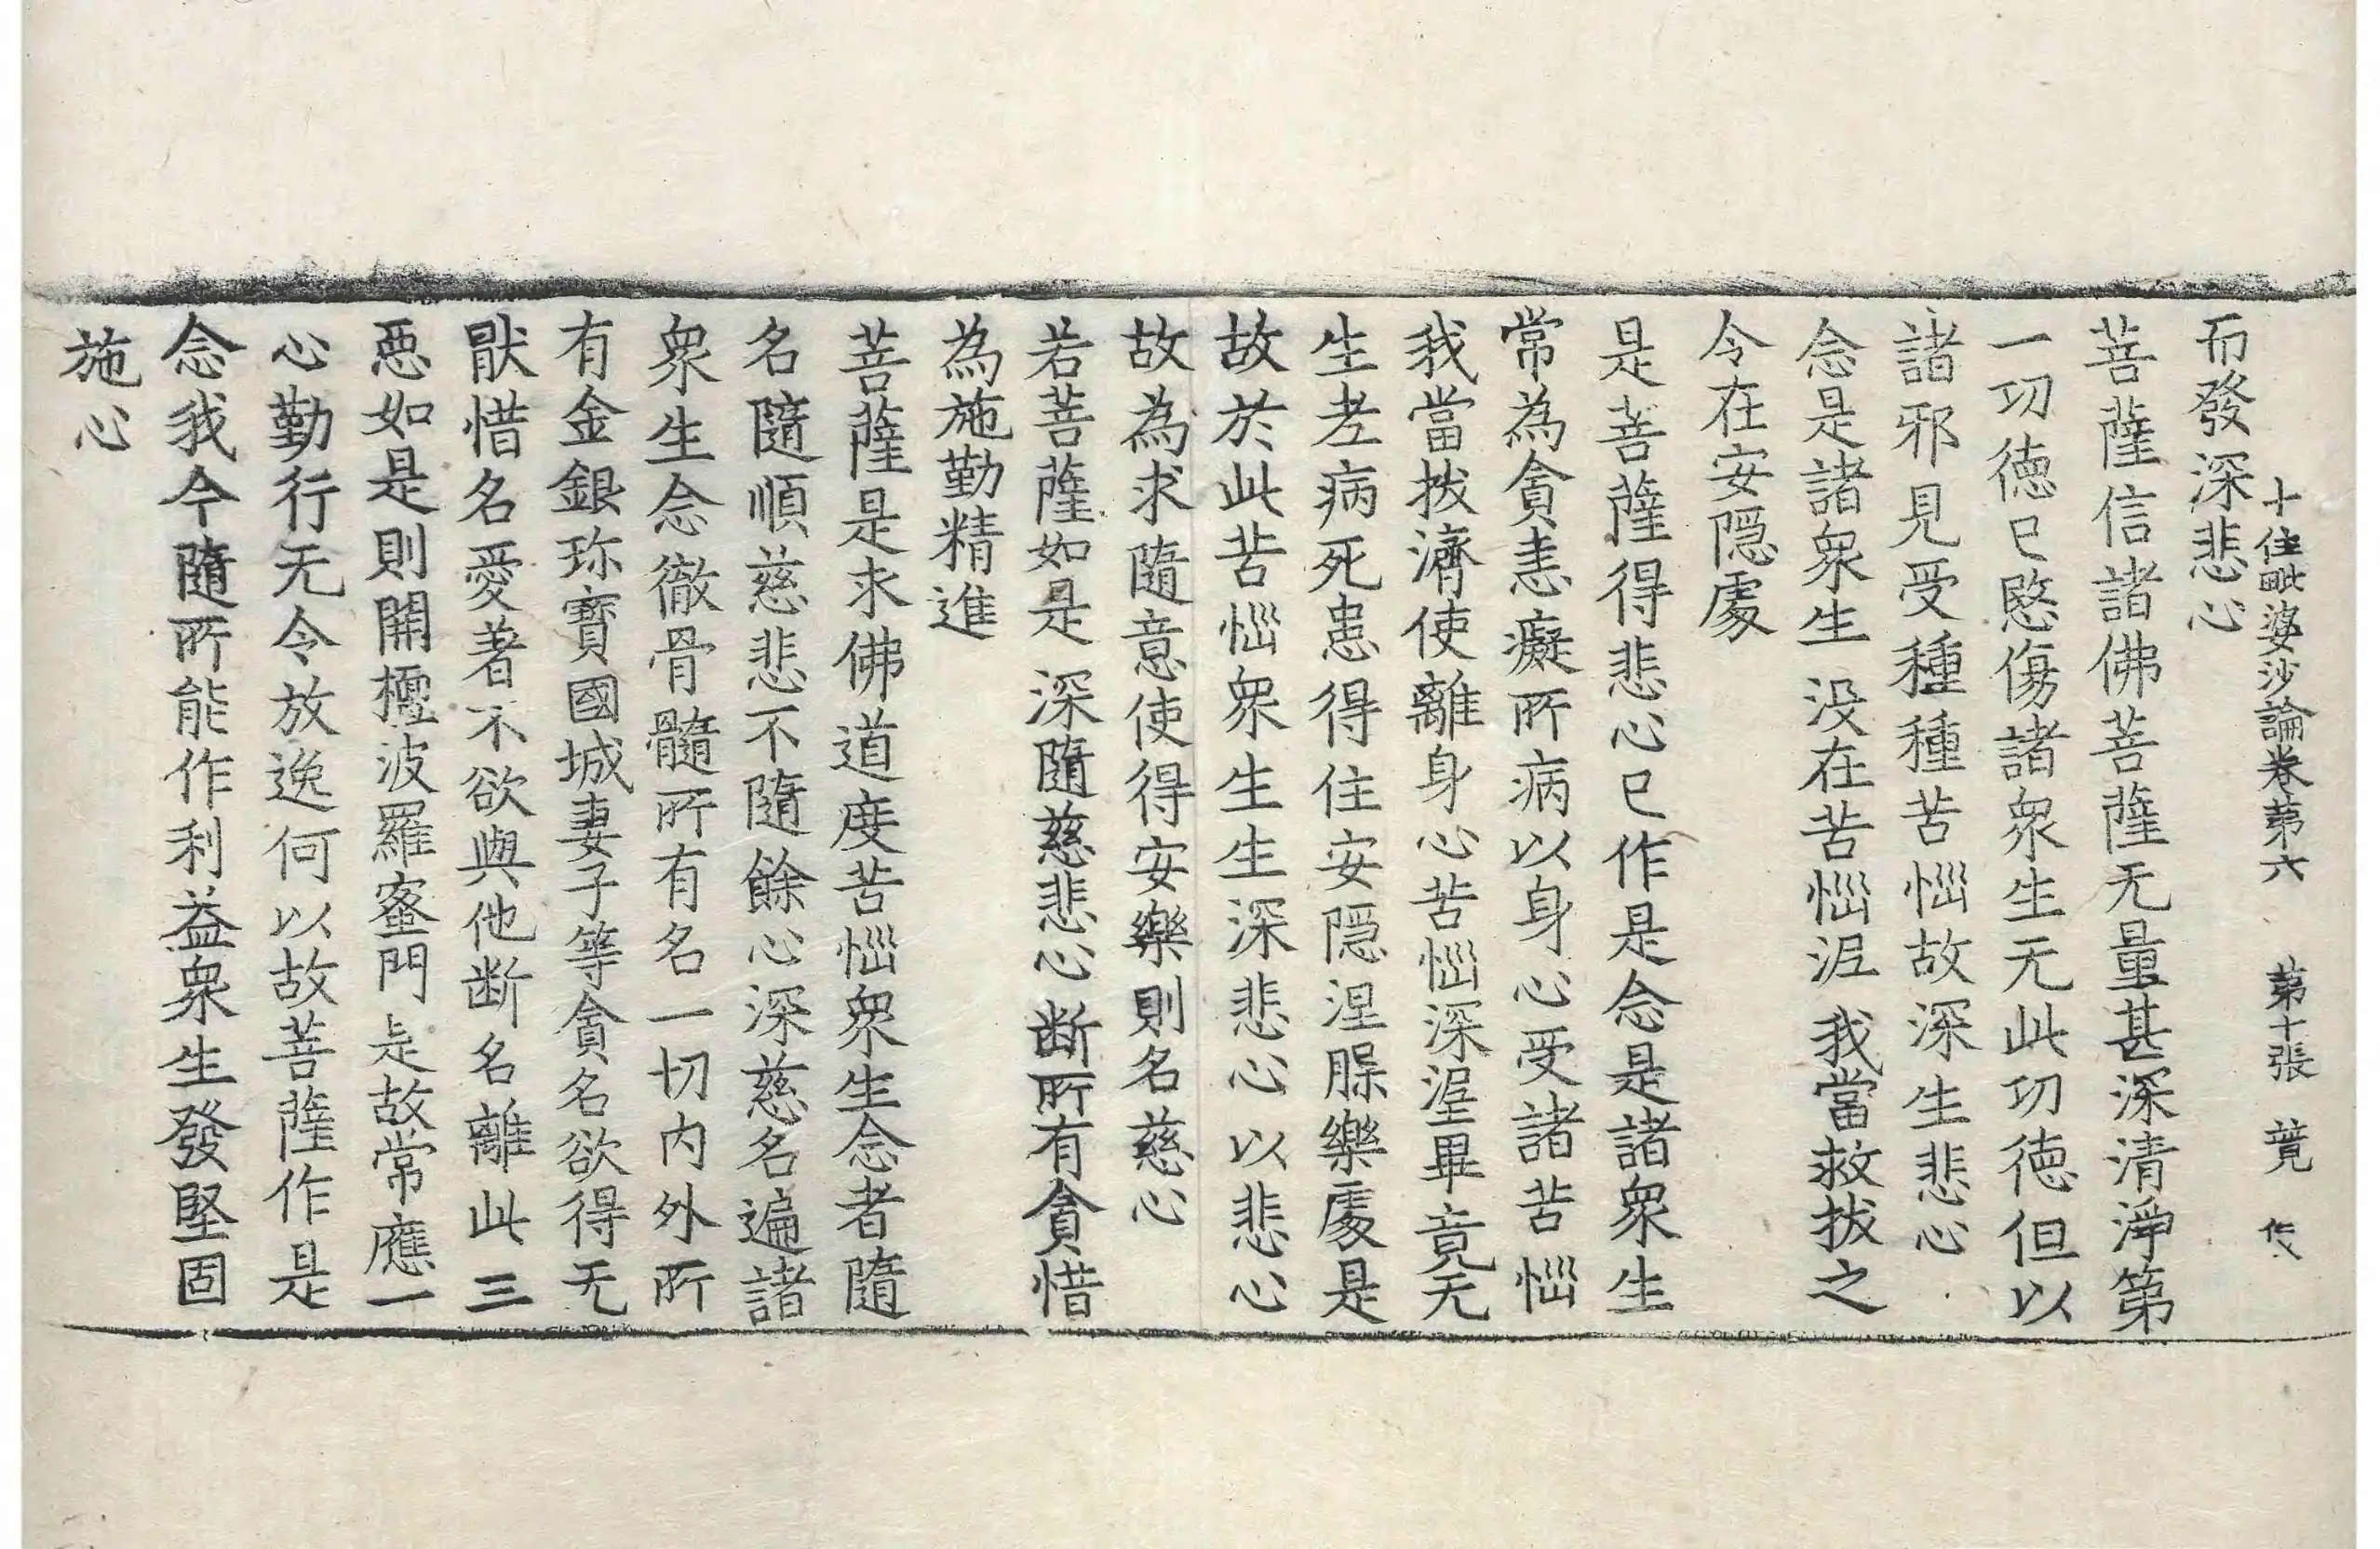 十住毗婆沙論卷第六　第十張　竟
而發深悲心
菩薩信諸佛菩薩无量甚深清淨第
一功徳已愍傷諸衆生无此功徳但以
諸邪見受種種苦惱故深生悲心
念是諸衆生没在苦惱泥我當救拔之
令在安隠處
是菩薩得悲心已作是念是諸衆生
常為貪恚癡所病以身心受諸苦惱
我當拔濟使離身心苦惱深泥畢竟无
生老病死患得住安隠涅槃樂處是
故於此苦惱衆生生深悲心以悲心
故為求隨意使得安樂則名慈心
若菩薩如是深隨慈悲心断所有貪惜
為施勤精進
菩薩是求佛道度苦惱衆生念者隨
名隨順慈悲不隨餘心深慈名遍諸
衆生念徹骨髓所有名一切内外所
有金銀珎寳國城妻子等貪名欲得无
猒惜名愛著不欲與他断名離此三
惡如是則開檀波羅蜜門是故常應一
心勤行无令放逸何以故菩薩作是
念我今隨所能作利益衆生發堅固
施心